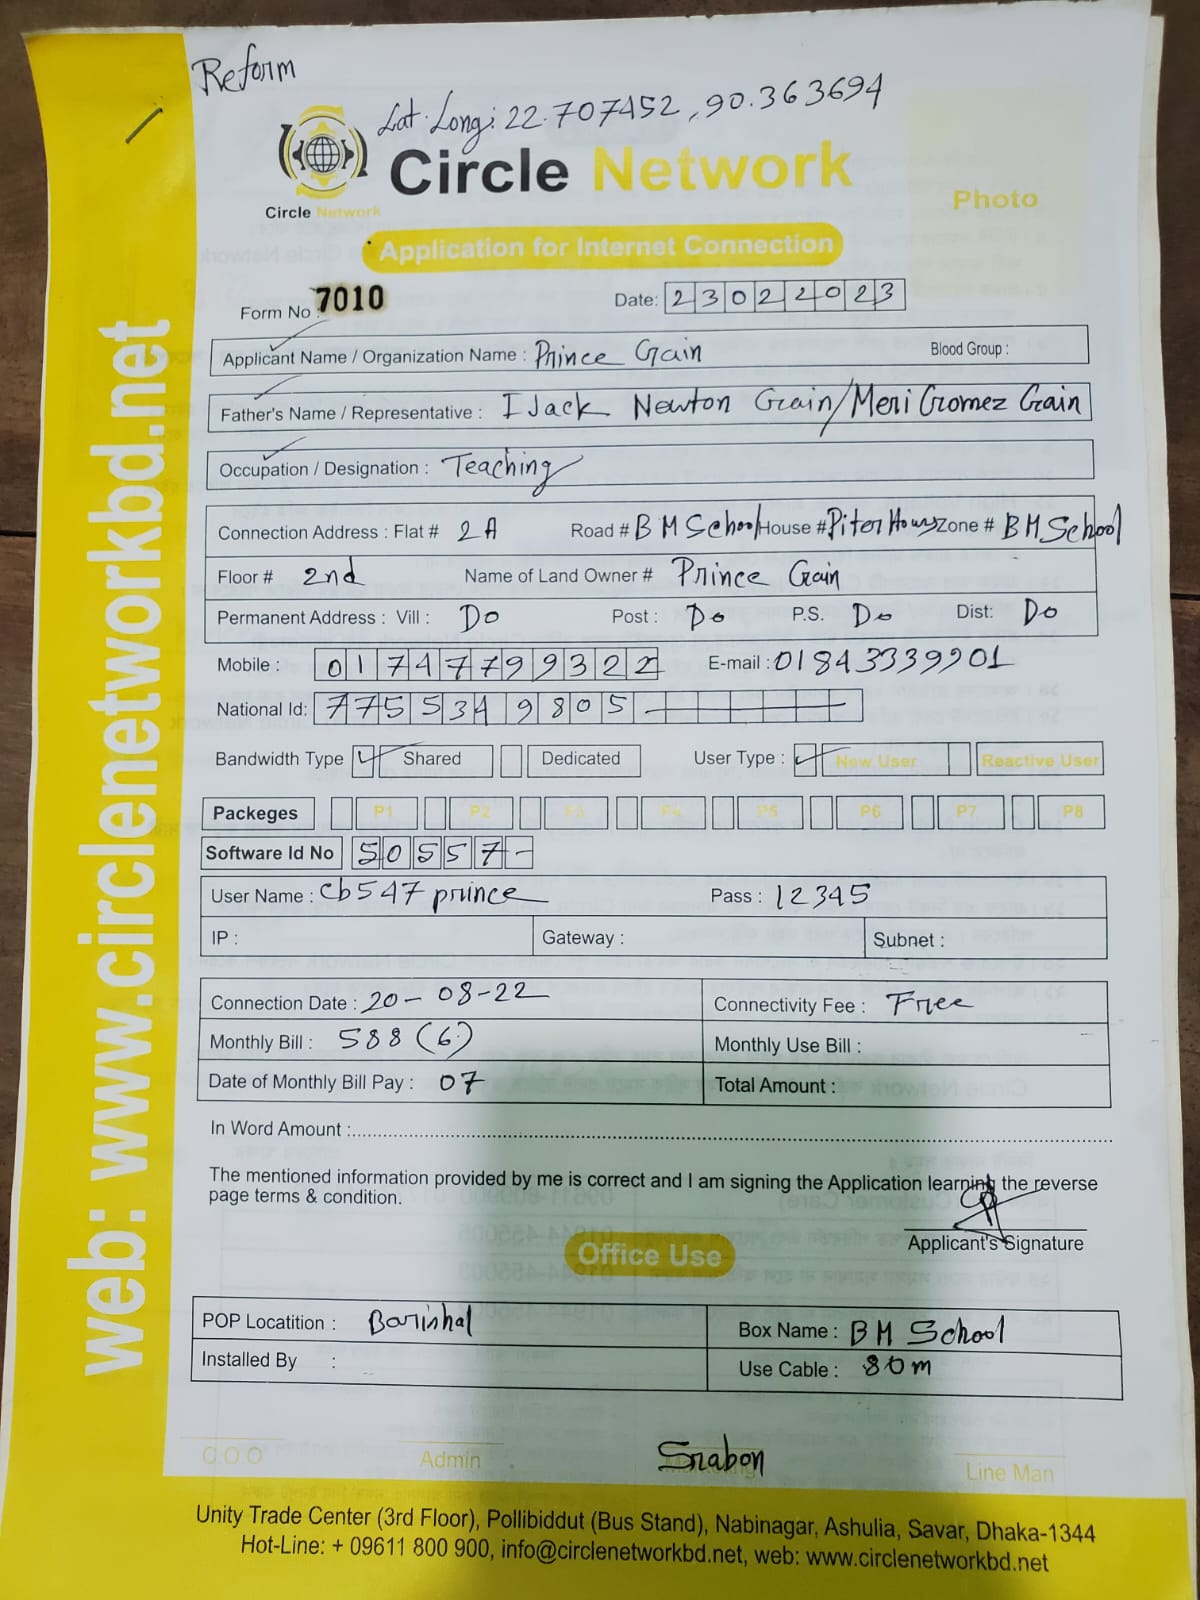 Reform
Lat. Long: 22.707452, 90.363694
Circle Network
Circle Network
Photo
Application for Internet Connection
Form No : 7010 Date: 23022023
Applicant Name / Organization Name : Prince Gain Blood Group :
Father's Name / Representative : I Jack Newton Gain/Meri Gomez Gain
Occupation / Designation : Teaching
Connection Address : Flat # 2A Road # BM School House # Piter House Zone # BM School
Floor # 2nd Name of Land Owner # Prince Gain
Permanent Address : Vill : Do Post : Do P.S. Do Dist: Do
Mobile : 01747799322 E-mail : 01843339901
National Id: 7755349805
Bandwidth Type Shared Dedicated User Type : New User Reactive User
Packeges P1 P2 P3 P4 P5 P6 P7 P8
Software Id No 50557-
User Name : cb547prince Pass : 12345
IP : Gateway : Subnet :
Connection Date : 20-08-22 Connectivity Fee : Free
Monthly Bill : 588 (6) Monthly Use Bill :
Date of Monthly Bill Pay : 07 Total Amount :
In Word Amount :
The mentioned information provided by me is correct and I am signing the Application learning the reverse
page terms & condition.
Applicant's Signature
Office Use
POP Locatition : Barishal Box Name : BM School
Installed By : Use Cable : 80m
C.O.O Admin Srabon Marketing Line Man
Unity Trade Center (3rd Floor), Pollibiddut (Bus Stand), Nabinagar, Ashulia, Savar, Dhaka-1344
Hot-Line: + 09611 800 900, info@circlenetworkbd.net, web: www.circlenetworkbd.net
web: www.circlenetworkbd.net